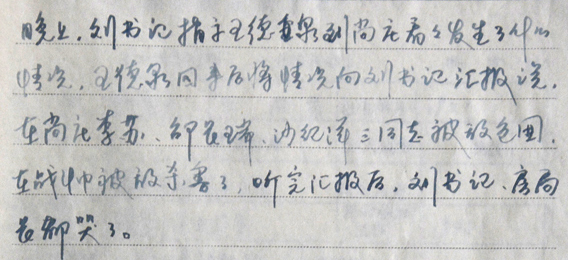 晚上，刘书记指示王德泉到尚庄看看发生了什么
情况，王德泉回来后将情况向刘书记汇报说，
在尚庄李苏、邹瑞、沙纪泽三同志被敌包围，
在战斗中被敌杀害了，听完汇报后，刘书记、房局
长都哭了。